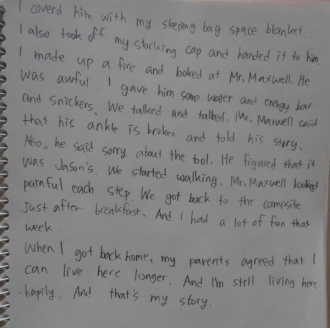 I coverd him with my sleeping bag space blanket.
I also took off my stocking cap and handed it to him
I made up a fire and looked at Mr. Maxwell. He
was awful. I gave him some water and energy bar
and snickers. We talked and talked. Mr. Maxwell said
that his ankle is broken and told his story.
Also, he said sorry about the tool. He figured that it
was Jason's. We started walking. Mr. Maxwell looked
painful each step. We got back to the campsite
Just after breakfast. And I had a lot of fun that
week.
When I got back home, my parents agreed that I
can live here longer. And I'm still living here
happily. And that's my story.